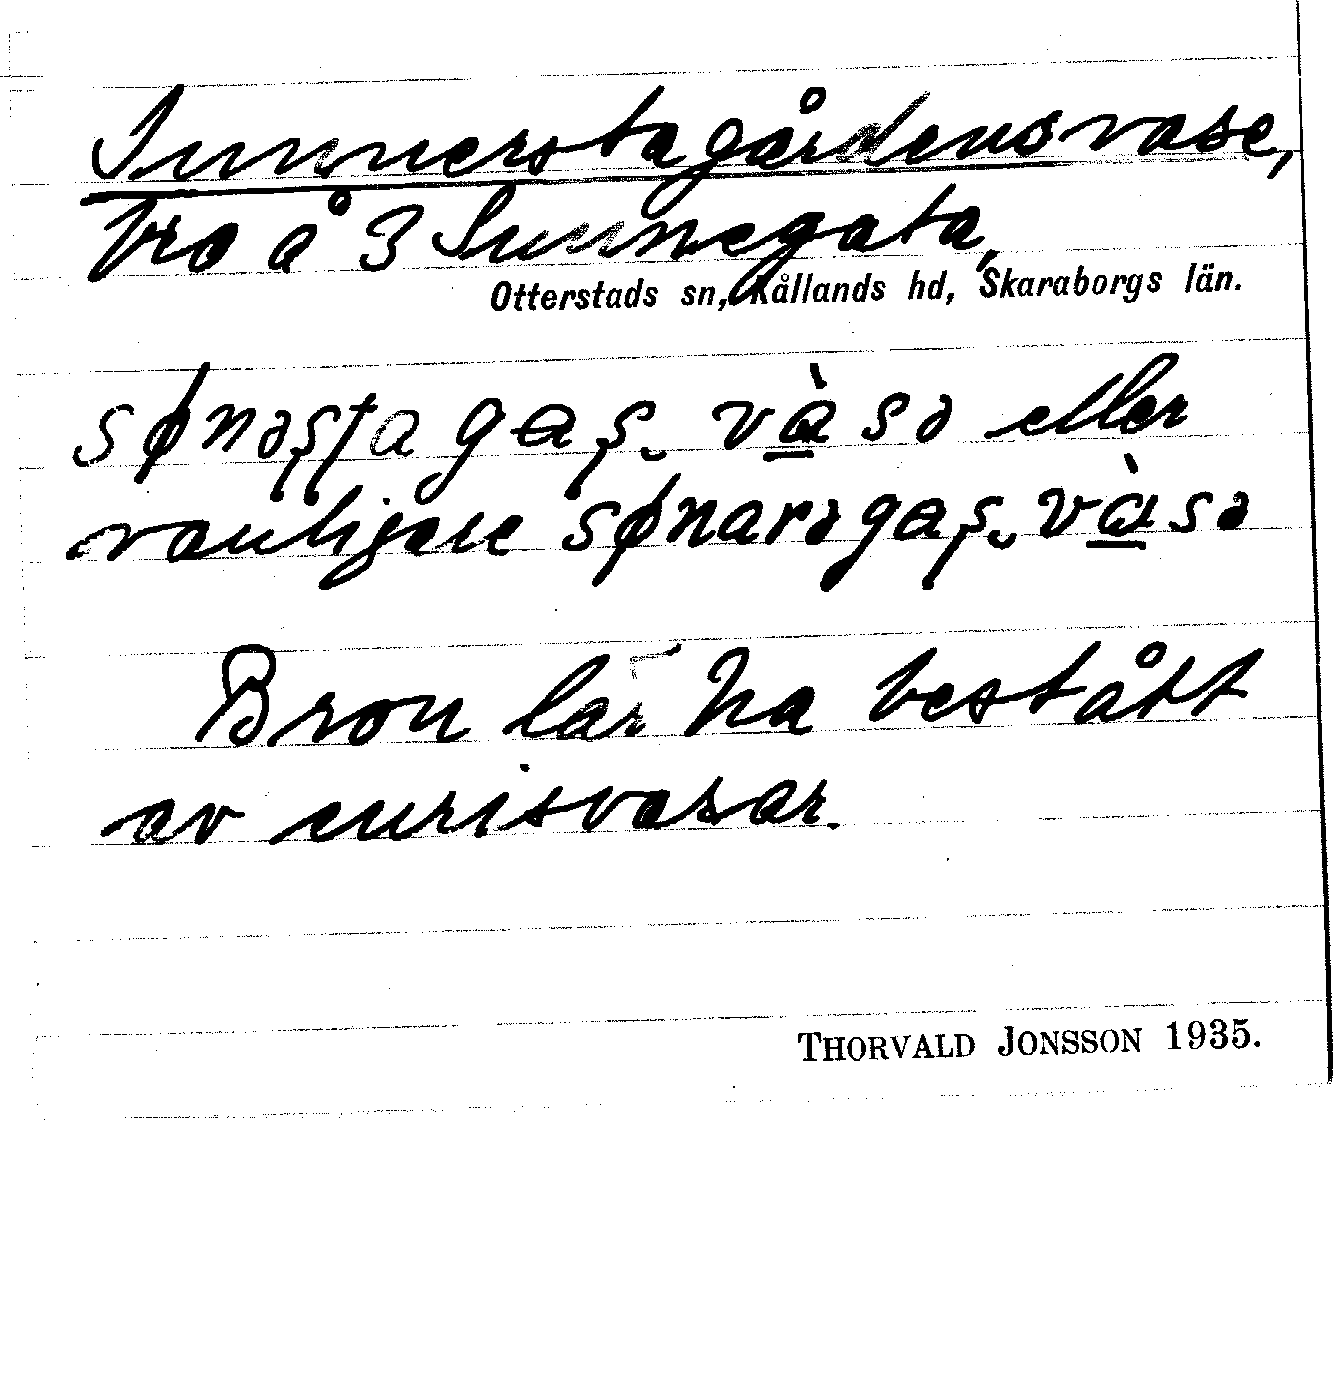 Sunnerstagårdensvase,
bro å 3 Sunnegata,
Otterstads sn, Kållands hd, Skaraborgs län.
sønəʂʈa gaʂ. vàsə eller
vanligare sønarəgaʂ. vàsə
Bron lär ha bestått
av enrisvasar.
THORVALD JONSSON 1935.